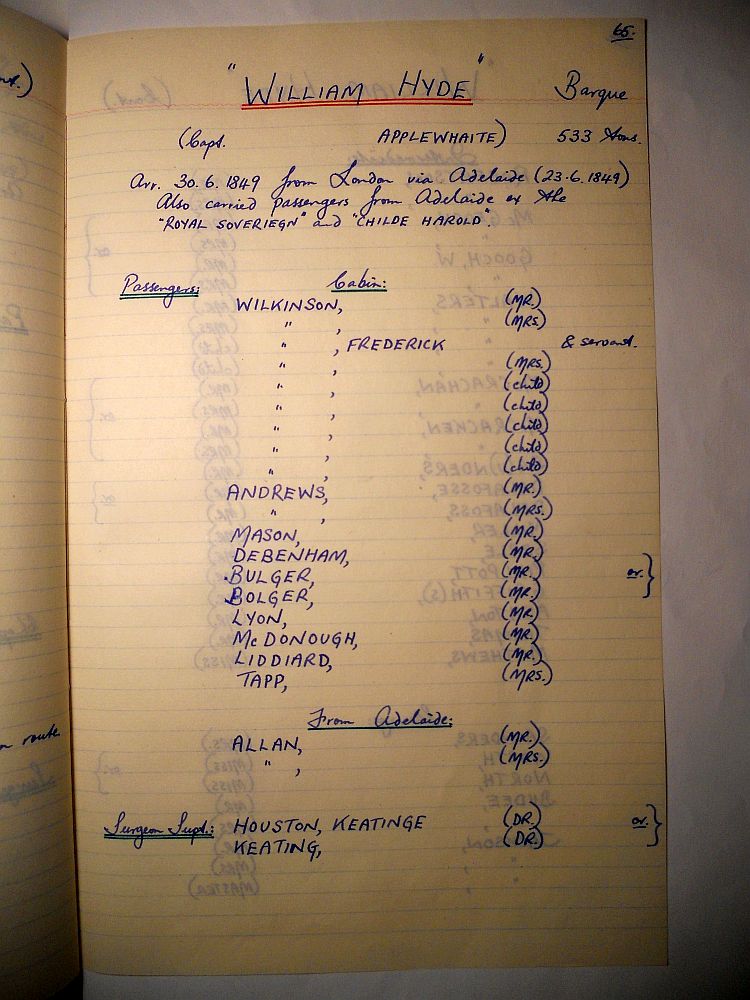 65.
"WILLIAM HYDE" Barque
(Capt. APPLEWHAITE) 533 tons.
Arr. 30.6.1849 from London via Adelaide (23.6.1849)
Also carried passengers from Adelaide ex the
"ROYAL SOVERIEGN" and "CHILDE HAROLD".
Passengers: Cabin:
WILKINSON, (MR.)
" , (MRS.)
" , FREDERICK & servant.
" , (MRS.)
" , (child)
" , (child)
" , (child)
" , (child)
" , (child)
ANDREWS, (MR.)
" , (MRS.)
MASON, (MR.)
DEBENHAM, (MR.)
BULGER, (MR.) or. }
BOLGER, (MR.)
LYON, (MR.)
McDONOUGH, (MR.)
LIDDIARD, (MR.)
TAPP, (MRS.)
From Adelaide:
ALLAN, (MR.)
" , (MRS.)
Surgeon Supt.: HOUSTON, KEATINGE (DR.) or. }
KEATING, (DR.)
route